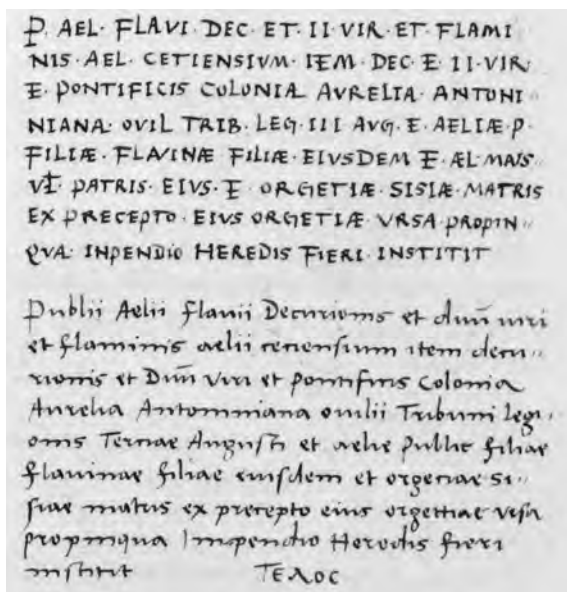 P. AEL· FLAVI· DEC· ET· II·VIR· ET· FLAMI
NIS· AEL· CETIENSIVM· IEM· DEC· E· II·VIR
E· PONTIFICIS COLONIA AVRELIA· ANTONI〃
NIANA· OVIL TRIB· LEG· III AVG· E· AELIÆ P·
FILIÆ· FLAVINÆ FILIÆ· EIVSDEM E· ÆL MAIS
PATRIS· EIVS· E· ORGETIÆ· SISIÆ· MATRIS
EX PRECEPTO· EIVS ORGETIÆ· VRSA PROPIN〃
QVA· INPENDIO HEREDIS FIERI· INSTITIT
Publii Aelii Flavii Decurionis et duũ uiri
et flaminis aelii ceciensium item decu〃
rionis et Duũ Viri et pontificis Colonia
Aurelia Antoniniana ouilii Tribuni legi〃
onis Terciae Augusti et aelie Publie filiae
flavinae filiae eiusdem et orgeciae Si〃
siae matris ex precepto eius orgettiae Vrsa
propinqua Impendio Heredis fieri
institit ΤΕΛΟC